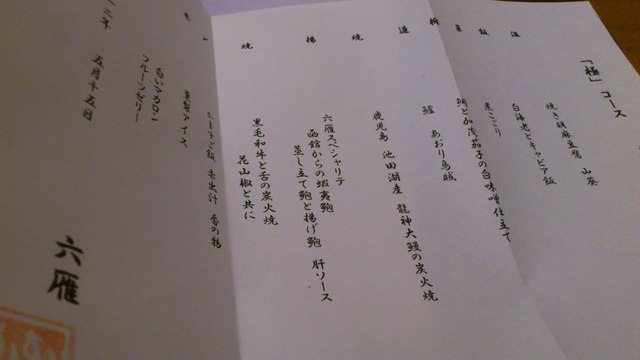 「極」コース
焼き胡麻豆腐 山葵
白海老とキャビア飯
煮こごり
鯛と加茂茄子の白味噌仕立て
鱧 あおり烏賊
鹿児島 池田湖産 龍神大鰻の炭火焼
六雁スペシャリテ
函館からの蝦夷鮑
蒸し立て鮑と揚げ鮑 肝ソース
黒毛和牛と舌の炭火焼
花山椒と共に
飯 赤出汁 香の物
アイス
白いマカロン
フルーツゼリー
五月十五日
六雁